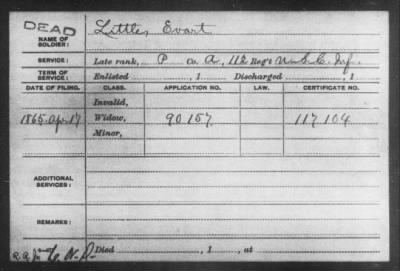 DEAD
NAME OF SOLDIER: Little, Evart
SERVICE: Late rank, P Co. A, 112 Reg't U.S.C. Inf.
TERM OF SERVICE: Enlisted , 1 Discharged , 1
DATE OF FILING. CLASS. APPLICATION NO. LAW. CERTIFICATE NO.
Invalid,
1865 Apr 17 Widow, 90157 117104
Minor,
ADDITIONAL SERVICES:
REMARKS:
Died , 1 , at